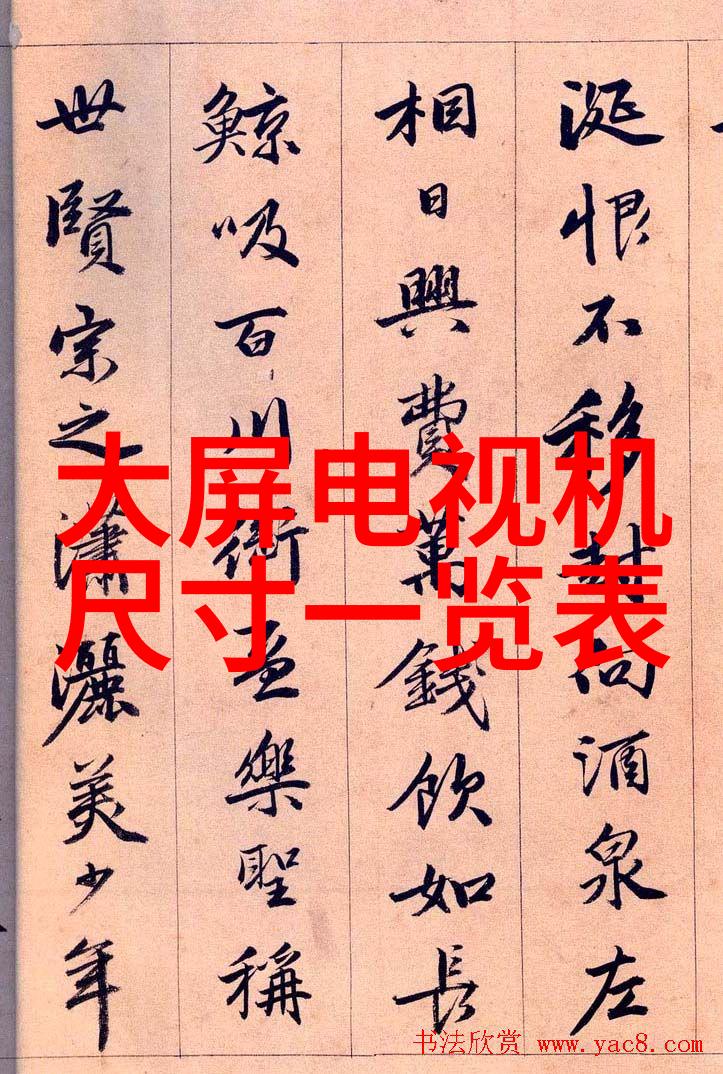 大屏电视机
尺寸一览表
涎恨不移封向酒泉左
相日興費萬錢飲如長
鯨吸百川銜盃樂聖稱
世賢宗之瀟灑美少年
书法欣赏 www.yac8.com